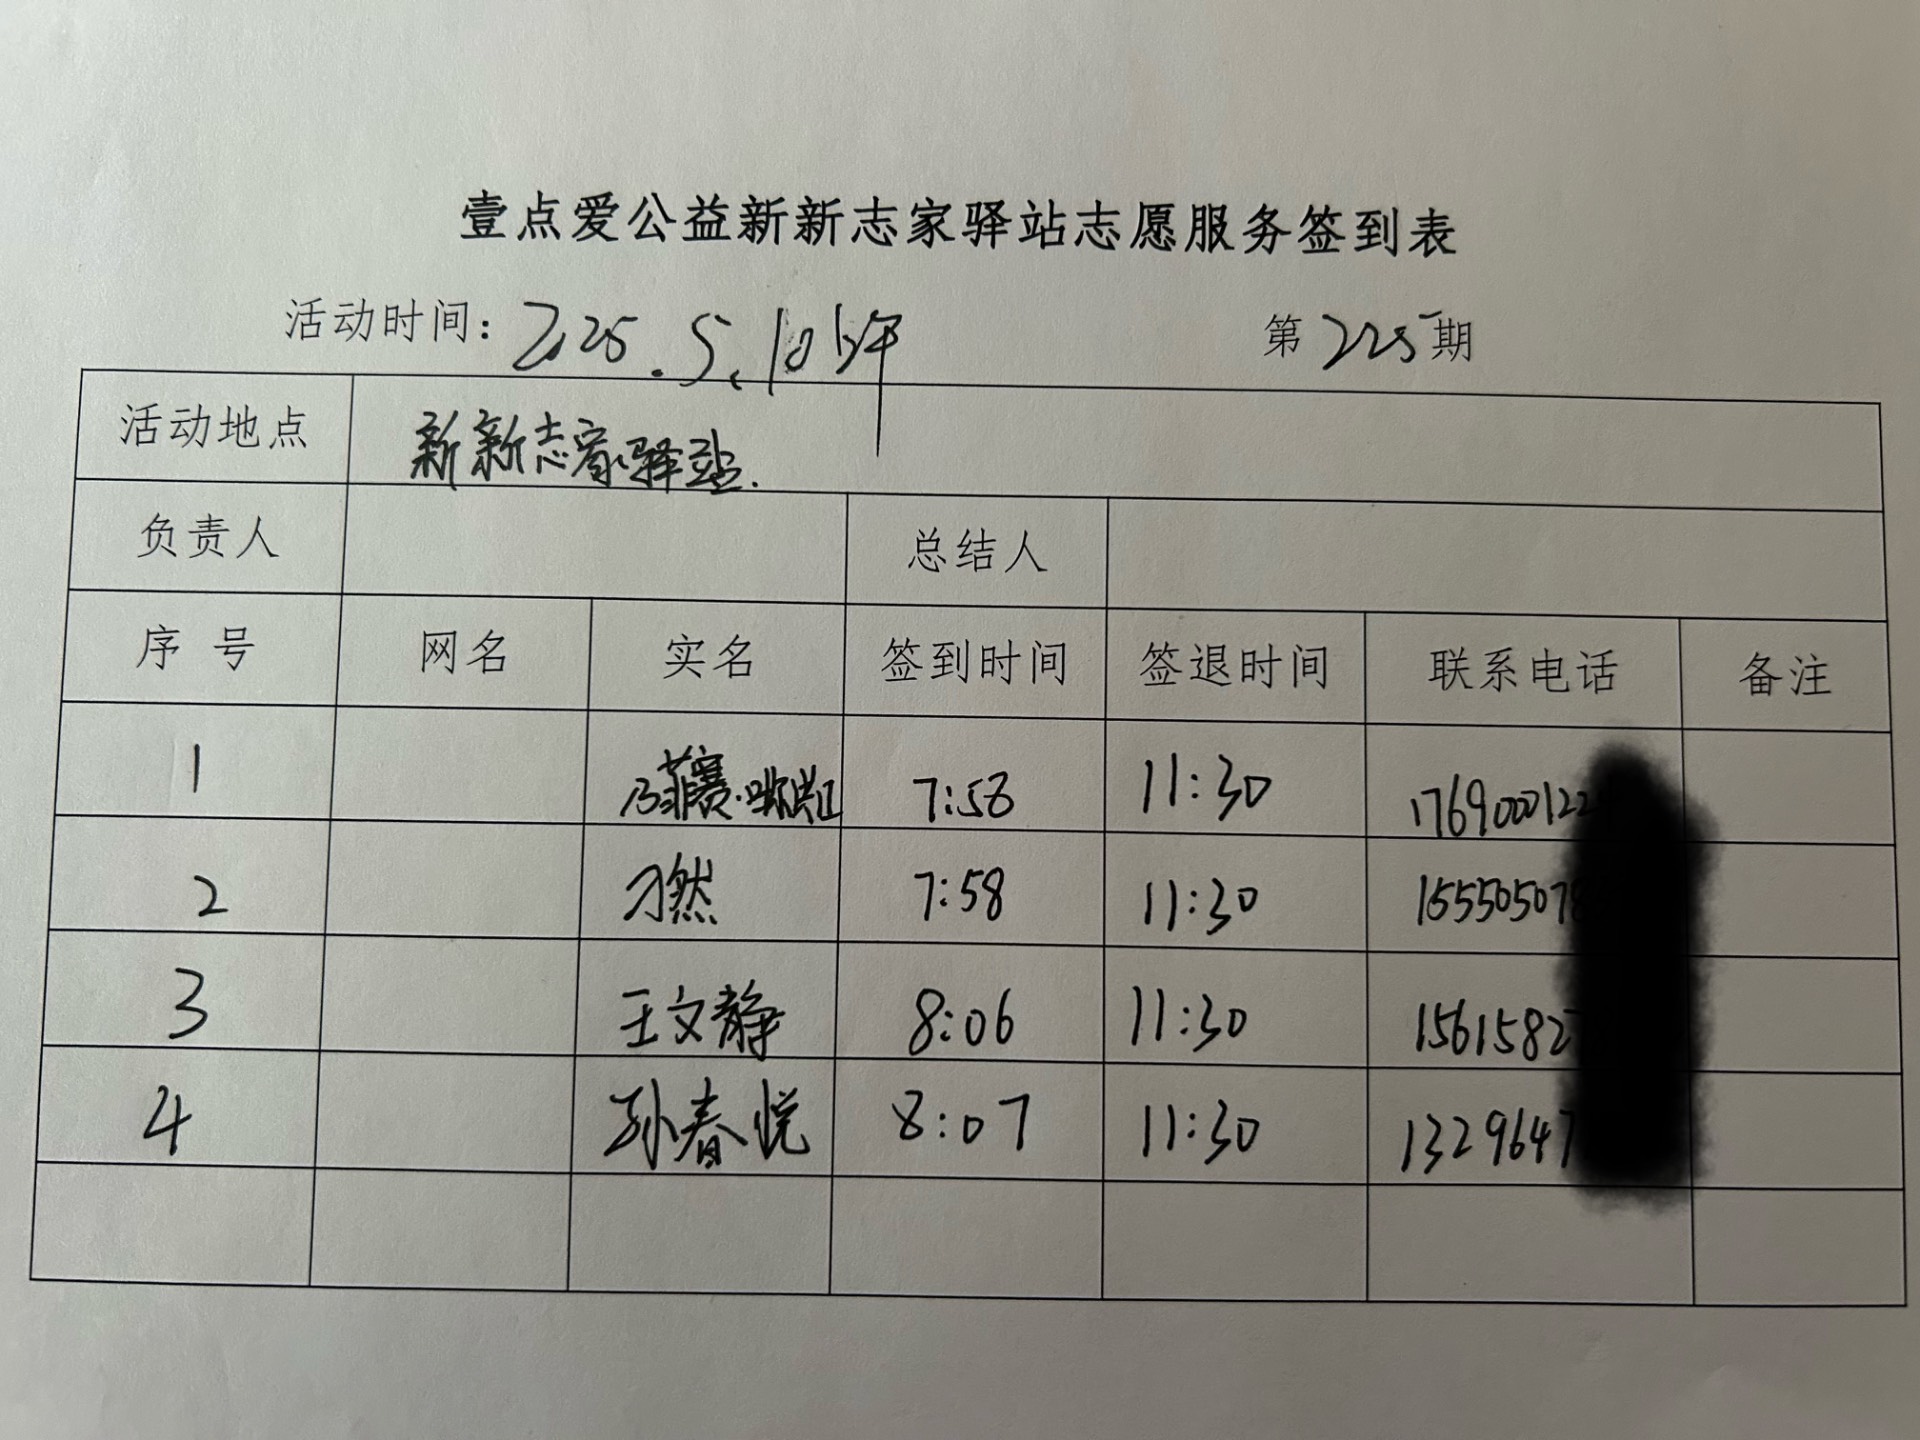 壹点爱公益新新志家驿站志愿服务签到表
活动时间: 2025.5.10 上午 第225期
活动地点 新新志家驿站.
负责人 总结人
序号 网名 实名 签到时间 签退时间 联系电话 备注
1 7:58 11:30 1769000122
2 刁然 7:58 11:30 155505078
3 王文静 8:06 11:30 1561582
4 孙春悦 8:07 11:30 1329647